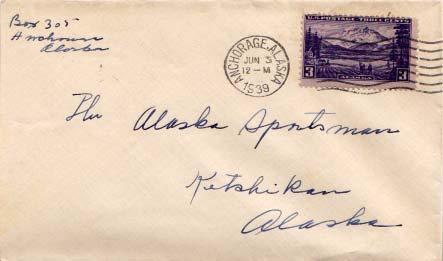 Box 305
Anchorage
Alaska
ANCHORAGE-ALASKA
JUN 5
12-M
1939
U.S. POSTAGE THREE CENTS
3 3
ALASKA
The Alaska Sportsman
Ketchikan
Alaska